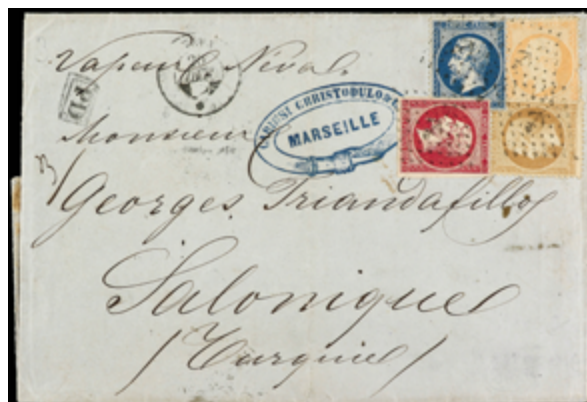 Vapeur Nival
PD
CHRISTODULO
MARSEILLE
Monsieur
Georges Triandafillos
Salonique
(Turquie)